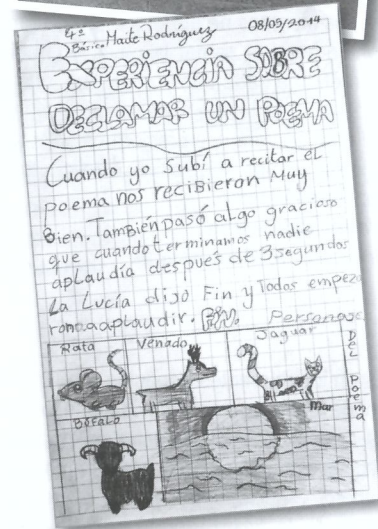 4º
Básico Maite Rodríguez
08/09/2014
EXPERIENCIA SOBRE
DECLAMAR UN POEMA
Cuando yo subí a recitar el
poema nos recibieron Muy
Bien. También pasó algo gracioso
que cuando terminamos nadie
aplaudía después de 3 segundos
La Lucía dijo Fin y Todos empeza
ron a aplaudir. Fin.
Personajes
Del Poema
Rata
Venado
Jaguar
Búfalo
Mar